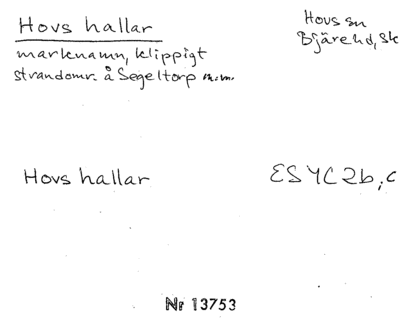 Hovs hallar
Hovs sn
Bjäre hd, Sk
marknamn, klippigt
strandomr. å Segeltorp m.m.
Hovs hallar
ESYC2b,c
Nr 13753